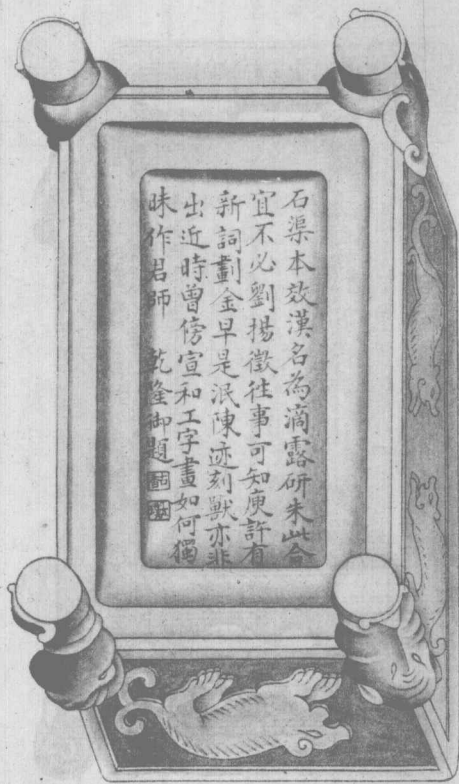 石渠本效漢名為滴露研朱此合
宜不必劉揚徵往事可知庾許有
新詞劃金早是泯陳迹刻獸亦非
出近時曾傍宣和工字畫如何獨
昧作君師　乾隆御題